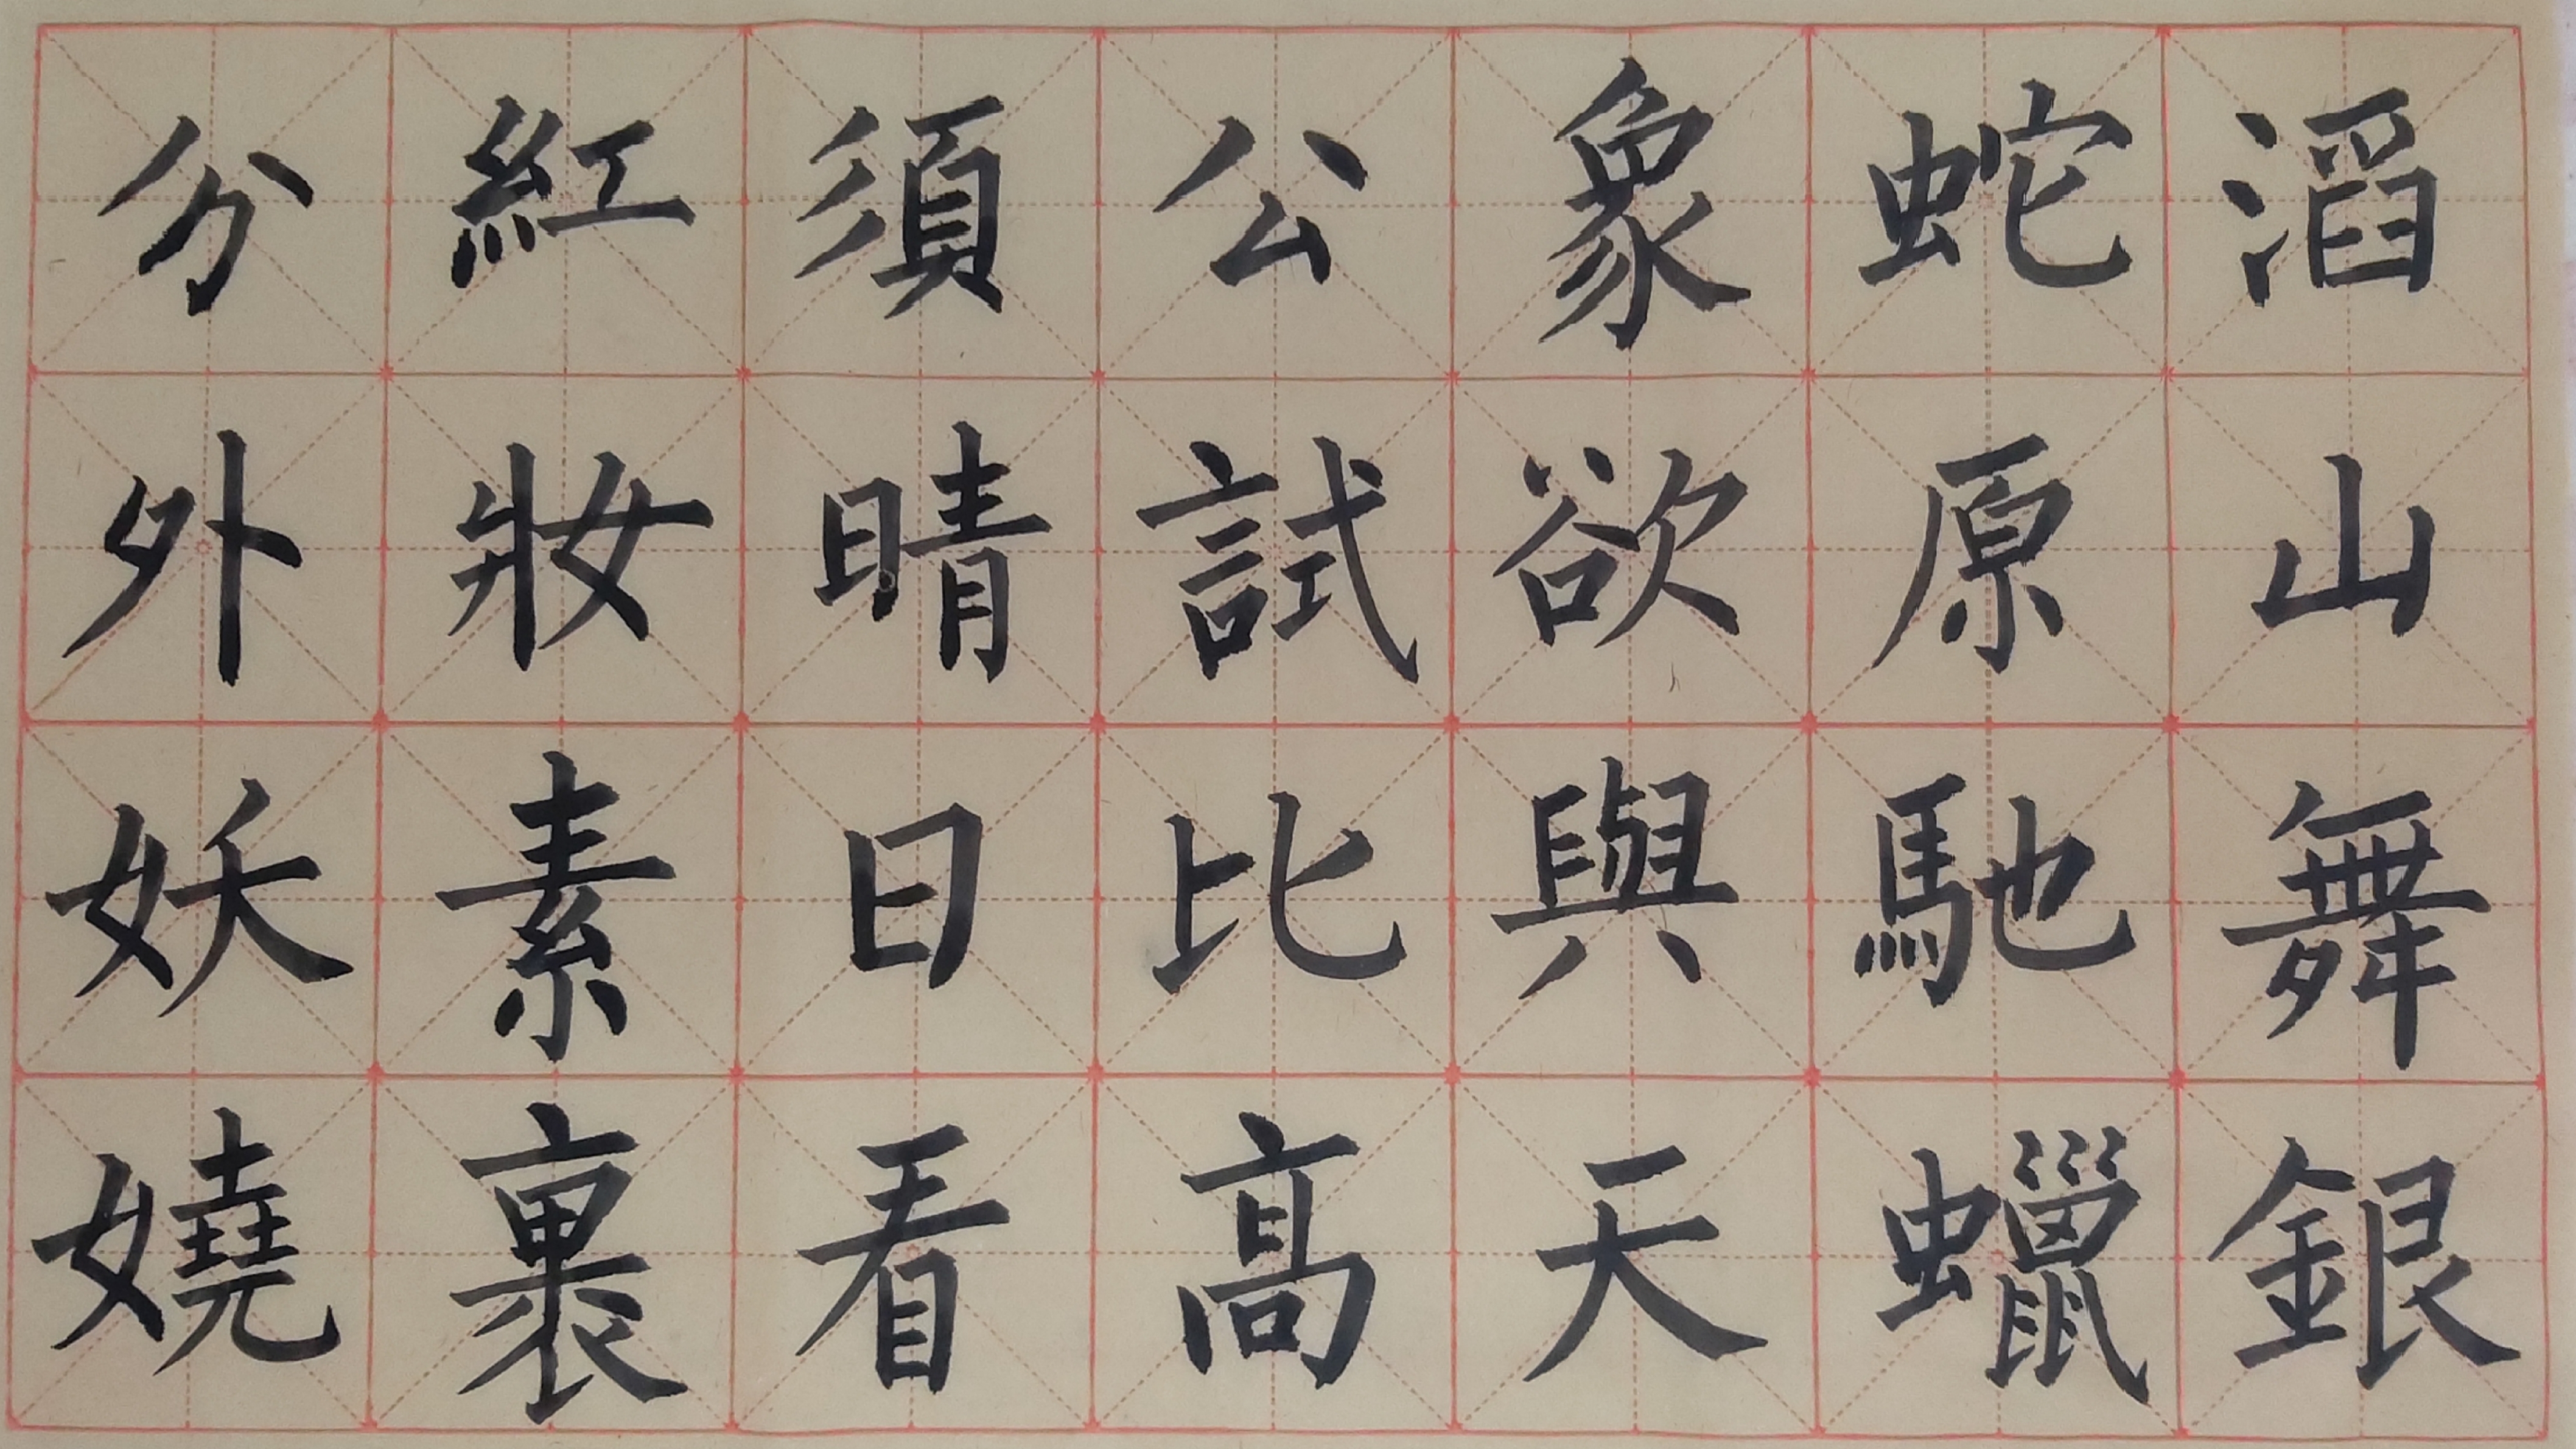 滔山舞銀
蛇原馳蠟
象欲與天
公試比高
須晴日看
紅妝素裹
分外妖嬈